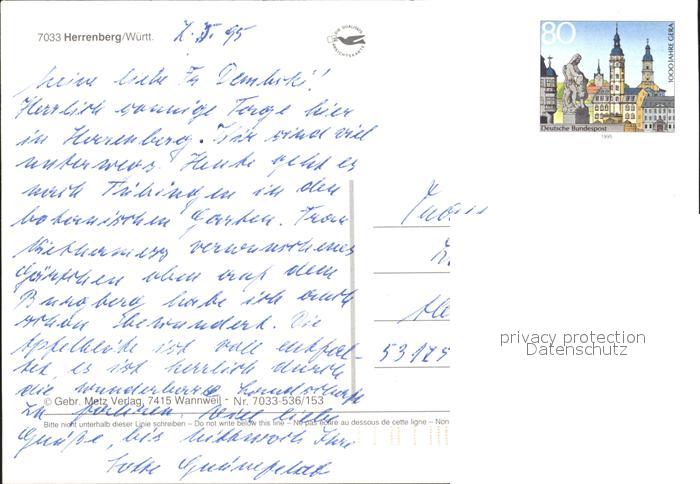 7033 Herrenberg/Württ.
7.5.95
80
1000 JAHRE GERA
Deutsche Bundespost
1995
Meine liebe Fr Dembski!
Herrlich sonnige Tage hier
in Herrenberg. Wir sind viel
unterwegs. Heute geht es
nach Tübingen in den
botanischen Garten. Frau
verwunschenes
Gärtchen oben auf dem
Burgberg habe ich auch
schon bewundert. Die
Apfelblüte ist voll entfal-
tet, es ist herrlich durch
die wunderbare Landschaft
© Gebr. Metz Verlag, 7415 Wannweil - Nr. 7033-536/153
zu fahren. Viele liebe
Bitte nicht unterhalb dieser Linie schreiben – Do not write below this line – Ne pas écrire au dessous de cette ligne – Non
Grüße, bis Mittwoch Ihre
Lotte
53175
privacy protection
Datenschutz